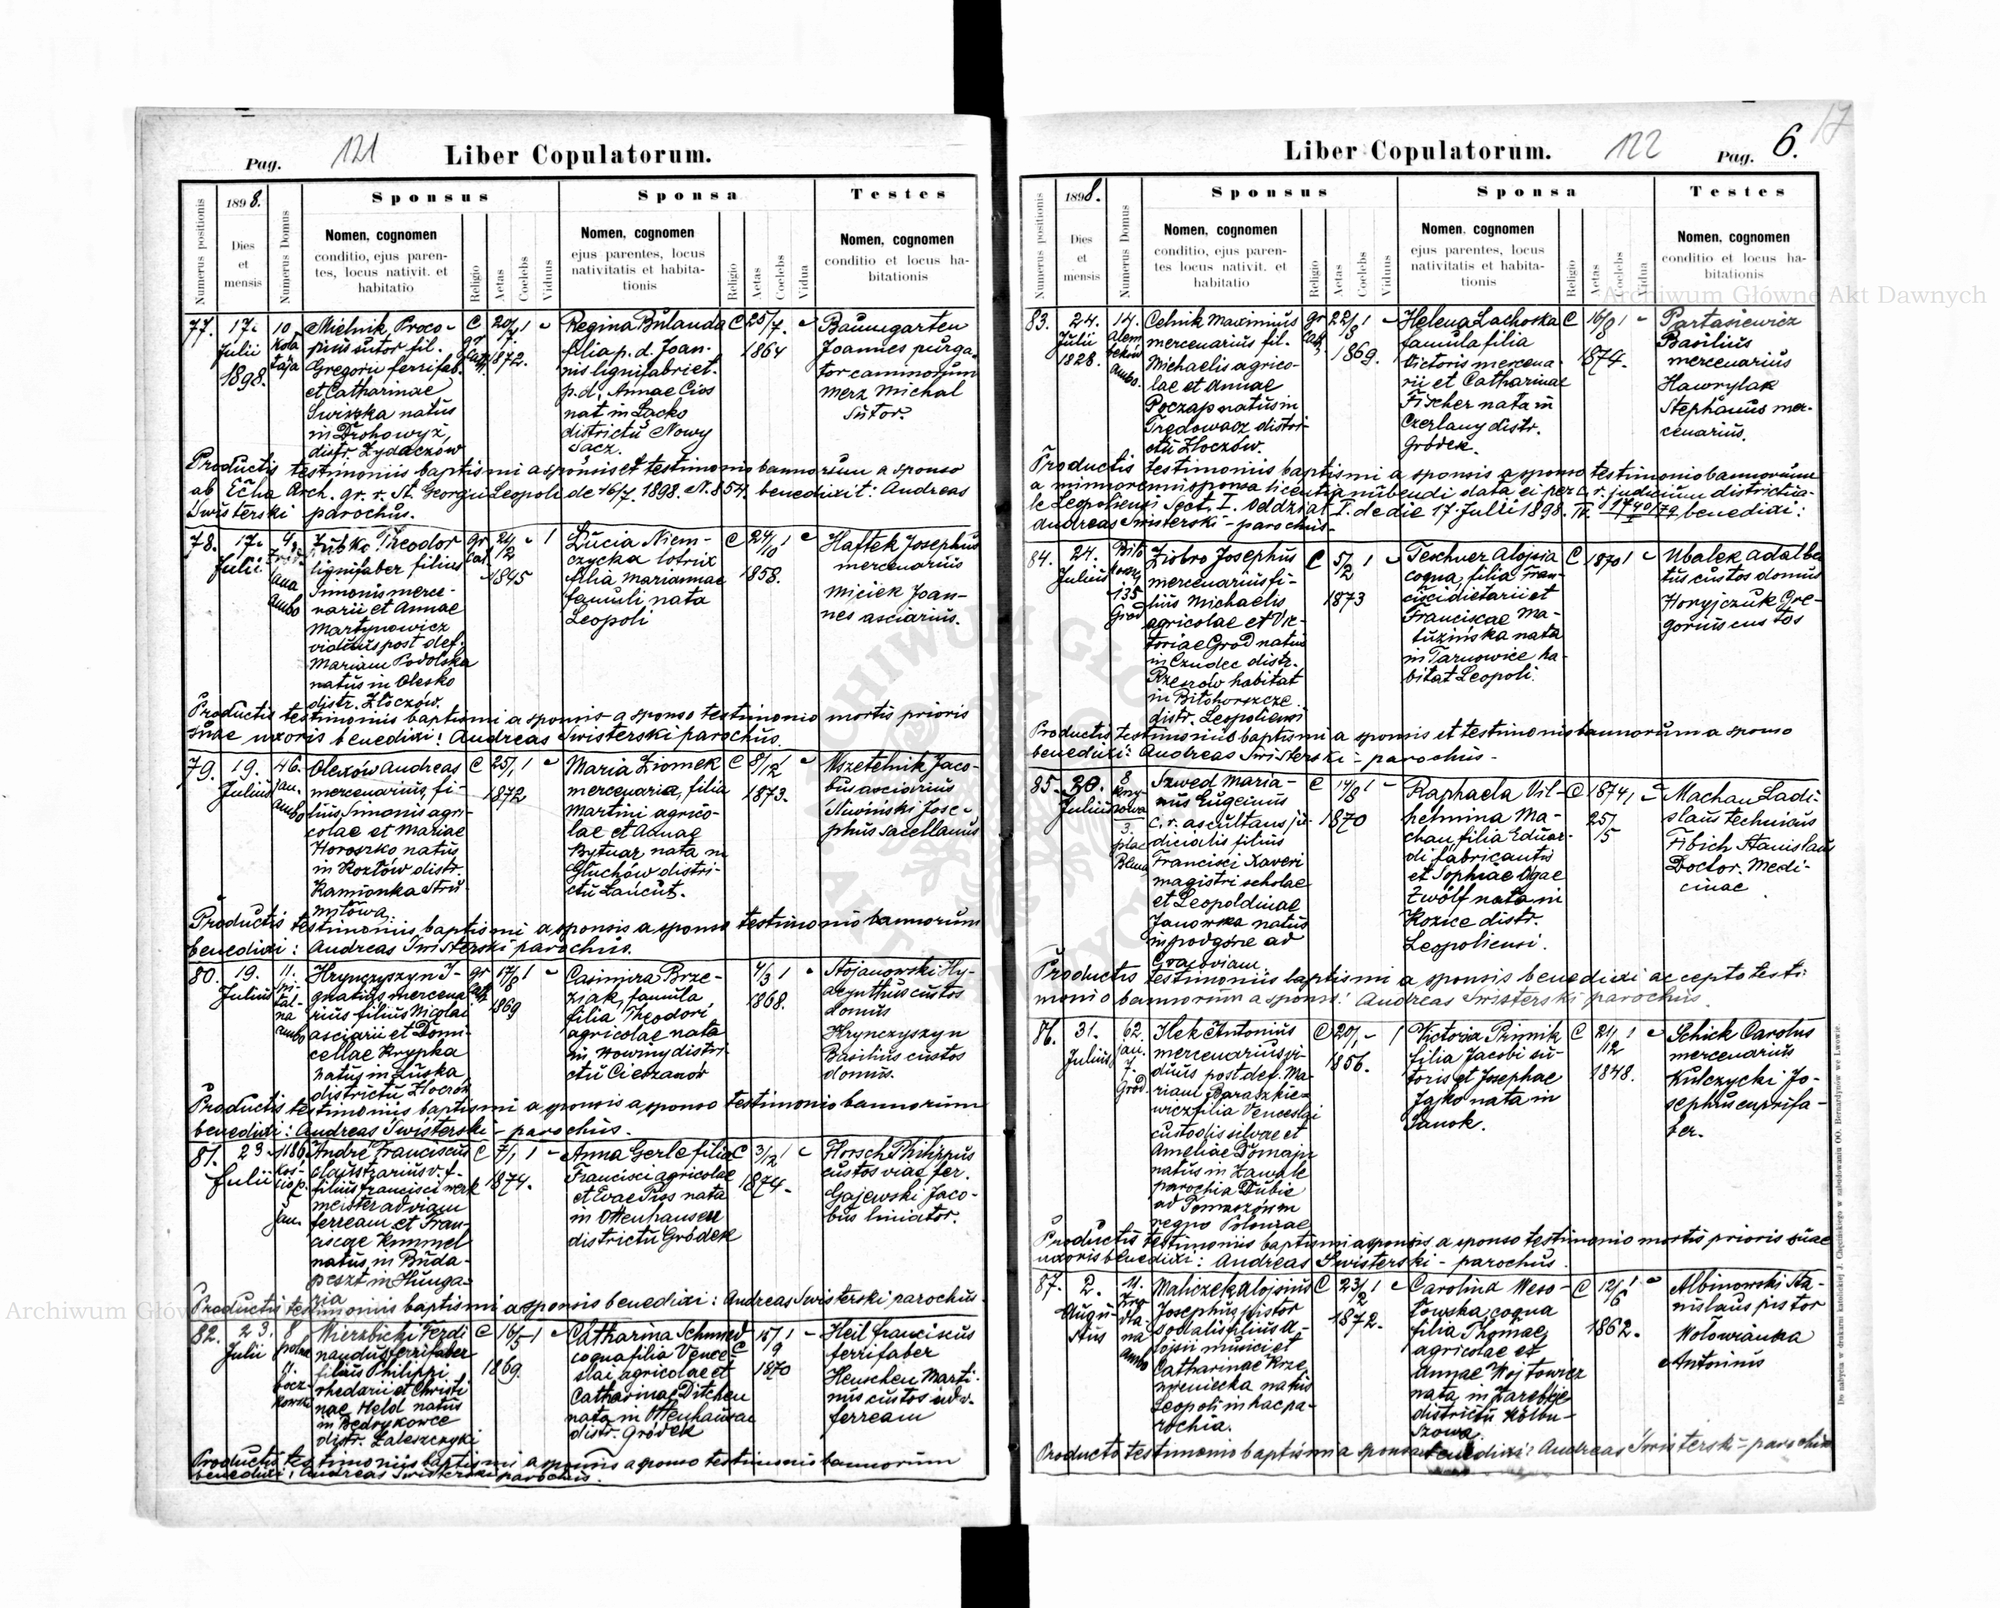 Pag. 121 Liber Copulatorum.
Numerus positionis
1898.
Dies
et
mensis
Numerus Domus
Sponsus
Nomen, cognomen
conditio, ejus paren-
tes, locus nativit. et
habitatio
Religio
Aetas
Coelebs
Viduus
Sponsa
Nomen, cognomen
ejus parentes, locus
nativitatis et habita-
tionis
Religio
Aetas
Coelebs
Vidua
Testes
Nomen, cognomen
conditio et locus ha-
bitationis
77.
17.
Julii
1898.
10
Mielnik Proco-
pius sutor fil.
Gregorii ferrifab.
et Catharinae
Swiszka natus
in Drohowyż,
distr. Żydaczów
C
gr
cath.
20/7 1
1872.
Regina Bulanda
filia p. d. Joan-
nis lignifabri et
p. d. Annae Cios
nat in Łącko
districtu Nowy
Sącz.
C
25/7. -
1864
Baumgarten
Joannes purga-
tor caminorum
Merz Michal
Sutor.
Productis testimoniis baptismi a sponsis et testimonio bannorum a sponso
ab Eccha Arch. gr. r. St. Georgii Leopoli de 16/7. 1898. N. 854. benedixit: Andreas
Swisterski parochus.
78.
17.
Julii
4.
ambo
Zubko Theodor
lignifaber filius
Simonis merce-
narii et Annae
Martynowicz
viduus post def.
Mariam Podolska
natus in Olesko
distr. Złoczów.
gr
cat.
24/2 - 1
1845
Lucia Niem-
czycka lotrix
filia Mariannae
famuli nata
Leopoli
C
24/10 1
1858.
Haftek Josephus
mercenarius
Miciek Joan-
nes asciarius.
Productis testimoniis baptismi a sponsis - a sponso testimonio mortis prioris
suae uxoris benedixi: Andreas Swisterski parochus.
79.
19.
Julius
46.
Jan.
ambo
Olexów Andreas
mercenarius, fi-
lius Simonis agri-
colae et Mariae
Horoszko natus
in Kozłów distr.
Kamionka Stru-
miłowa.
C
25/1 1 -
1872
Maria Ziomek
mercenaria, filia
Martini agrico-
lae et Annae
Bytnar nata in
Głuchów distri-
ctu Łańcut.
C
8/12 1 -
1873.
Wszetelnik Jaco-
bus asciarius
Niwiński Jose-
phus sacellanus
Productis testimoniis baptismi a sponsis a sponso testimonio bannorum
benedixi: Andreas Swisterski parochus.
80.
19.
Julius
11.
ambo
Hrynczyszyn I-
gnatius mercena
rius filius Nicolai
asciarii et Domi-
cellae Krypka
natus in Łuska
districtu Złoczów
gr
cath
17/8 1 -
1869
Casimira Brze-
ziak, famula,
filia Theodori
agricolae nata
in Nowiny distri-
ctu Cieszanów
4/3 1 -
1868.
Stojanowski Hy-
acynthus custos
domus
Hrynczyszyn
Basilius custos
domus.
Productis testimoniis baptismi a sponsis a sponso testimonio bannorum
benedixi: Andreas Swisterski - parochus.
81.
23.
Julii
1186.
Jan.
André Franciscus
filius Francisci werk
meister ad viam
ferream et Fran-
ciscae Kimmel
natus in Buda-
peszt in Hunga-
ria
C
7/1 1 -
1874.
Anna Gerle filia
Francisci agricolae
et Evae Piss nata
in Ottenhausen
districtu Gródek
C
3/12 1 -
1874.
Horsch Philippus
custos viae fer.
Gajewski Jaco-
bus liniator.
Productis testimoniis baptismi a sponsis benedixi: Andreas Swisterski parochus.
82.
23.
Julii
8
Wierzbicki Ferdi
nandus ferrifaber
filius Philippi
rhedarii et Christi
nae Held natus
in Bedrykowce
distr. Zaleszczyki
C
16/5 1 -
1869.
Catharina Schmied
cogua filia Vence-
slai agricolae et
Catharinae Ditchen
nata in Ottenhausen
distr. Gródek
C
15/9 1 -
1870
Heil Franciscus
ferrifaber
Henschen Marti-
nus custos ad v.
ferream
Productis testimoniis baptismi a sponsis a sponso testimonio bannorum
benedixi: Andreas Swisterski parochus.
Liber Copulatorum. 122 Pag. 6. 17
Numerus positionis
1898.
Dies
et
mensis
Numerus Domus
Sponsus
Nomen, cognomen
conditio, ejus paren-
tes locus nativit. et
habitatio
Religio
Aetas
Coelebs
Viduus
Sponsa
Nomen, cognomen
ejus parentes, locus
nativitatis et habita-
tionis
Religio
Aetas
Coelebs
Vidua
Testes
Nomen, cognomen
conditio et locus ha-
bitationis
83.
24.
Julii
1828.
14.
ambo.
Celnik Maximius
mercenarius fil-
Michaelis agrico-
lae et Annae
Poczap natus in
Trędowacz distri-
ctu Złoczów.
gr
cath
22/8 1 -
1869.
Helena Lachoska
famula filia
Victoris mercena-
rii et Catharinae
Fischer nata in
Czerlany distr.
Gródek.
C
16/8 1 -
1874.
Partasiewicz
Basilius
mercenarius
Hawrylak
Stephanus mer-
cenarius.
Productis testimoniis baptismi a sponsis a sponso testimonio bannorum
a minorenni sponsa licentia nubendi data ei per c. r. judicium districtua-
le Leopoliensi Sect. I. Oddział I. de die 17 Julii 1898. IV. benedixi:
Andreas Swisterski - parochus.
84.
24.
Julius
135
Gród
Ziobro Josephus
mercenarius fi-
lius Michaelis
agricolae et Vic-
toriae Grod natus
in Czudec distr.
Rzeszów habitat
in Biłohorszcze
distr. Leopoliensi
C
5/2 1 -
1873
Teschner Aloisia
coqua, filia Fran-
cisci dietarii et
Franciscae Ma-
tuzińska nata
in Tarnowice ha-
bitat Leopoli.
C
1870 1 -
Ubalek Adalber
tus custos domus
Horyjczuk Gre-
gorius custos
Productis testimoniis baptismi a sponsis et testimonio bannorum a sponso
benedixi: Andreas Swisterski - parochus -
85.
30.
Julius
8
3.
Szwed Maria-
nus Eugenius
c. r. ascultans ju-
dicialis filius
Francisci Xaveri
magistri scholae
et Leopoldinae
Janowska natus
in podgórze ad
Cracoviam
C
14/8 1 -
1870
Raphaela Vil-
helmina Ma-
chan filia Eduar-
di fabricantis
et Sophiae Olgae
Zwölf nata in
Kozice distr.
Leopoliensi.
C
1874 1 -
25/5
Machan Ladi-
slaus technicus
Fibich Stanislaus
Doctor. Medi-
cinae
Productis testimoniis baptismi a sponsis benedixi accepto testi-
monio bannorum a sponso: Andreas Swisterski parochus.
86.
31.
Julius
62.
Jan.
7.
Gród
Ilek Antonius
mercenarius vi-
duus post def. Ma-
riam Baraszkie-
wicz filia Venceslai
custodis silvae et
Ameliae Domajn
natus in Zawale
parochia Dubie
ad Tomaszówm
regno Poloniae
C
20/. - 1
1856.
Victoria Pinnik
filia Jacobi su-
toris et Josephae
Jajko nata in
Sanok.
C
21/12 1 -
1848.
Schick Carolus
mercenarius
Kulczycki Jo-
sephus cuprifa-
ber.
Productis testimoniis baptismi a sponsis a sponso testimonio mortis prioris suae
uxoris benedixi: Andreas Swisterski - parochus.
87.
2.
Augu-
stus
11.
ambo
Maliczek Aloisius
Josephus pistor
sodalis filius A-
loisii munici et
Catharinae Krze
mieniecka natus
Leopoli in hac pa-
rochia.
C
23/2 1 -
1872.
Carolina Weso-
łowska, coqua
filia Thomae
agricolae et
Annae Wojtowicz
nata in Zarebie
districtu Kolbu-
szowa
C
12/6 1 -
1862.
Albinowski Sta-
nislaus pistor
Wołowianka
Antonius
Producto testimonio baptismi a sponsa benedixi: Andreas Swisterski - parochus
Do nabycia w drukarni katolickiej J. Chęcińskiego w zabudowaniu OO. Bernardynów we Lwowie.
Archiwum Główne Akt Dawnych